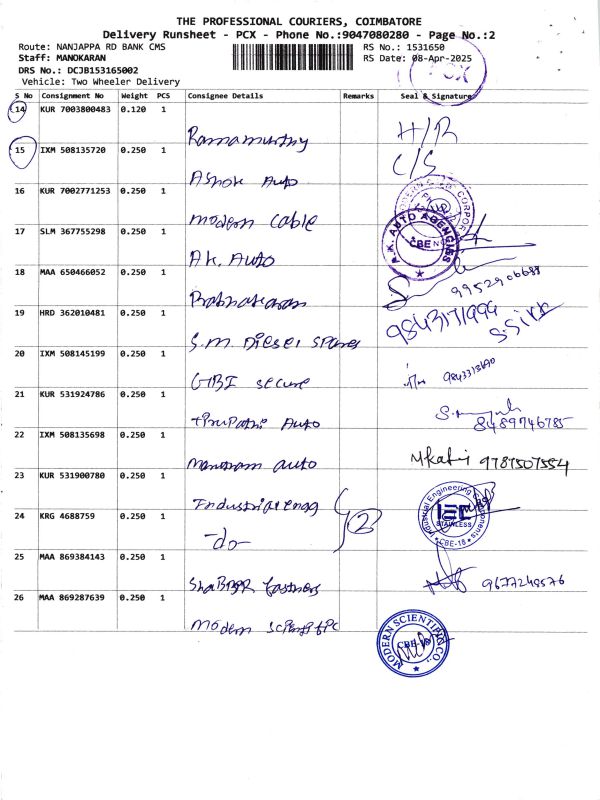 THE PROFESSIONAL COURIERS, COIMBATORE
Delivery Runsheet - PCX - Phone No.:9047080280 - Page No.:2
Route: NANJAPPA RD BANK CMS
RS No.: 1531650
Staff: MANOKARAN
RS Date: 08-Apr-2025
DRS No.: DCJB153165002
PCX
Vehicle: Two Wheeler Delivery
S No Consignment No Weight PCS Consignee Details Remarks Seal & Signature
14 KUR 7003800483 0.120 1
Ramamurthy H/R
15 IXM 508135720 0.250 1
Ashok Auto C/S
16 KUR 7002771253 0.250 1
Modern Cable
17 SLM 367755298 0.250 1
A.K. Auto
A.K. AUTO AGENCIES
CBE
18 MAA 650466052 0.250 1
Prabhakaran 9952906688
19 HRD 362010481 0.250 1
S.M Diesel Spares
20 IXM 508145199 0.250 1
GBI Secure
21 KUR 531924786 0.250 1
thirupathi Auto 8489746785
22 IXM 508135698 0.250 1
manoram auto 9787507554
23 KUR 531900780 0.250 1
Industrial engg
24 KRG 4688759 0.250 1
-do- 2
Industrial Engineering Components
STAINLESS
CBE-18
25 MAA 869384143 0.250 1
fastners 9677248576
26 MAA 869287639 0.250 1
Modern
MODERN SCIENTIFIC CO.,
CBE-18